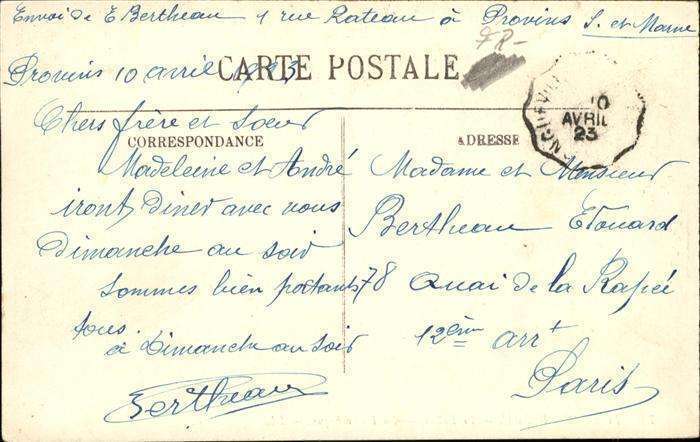 Envoi de E Bertheau 1 rue Rateau à Provins S. et Marne
FR-
Provins 10 avril 1923
CARTE POSTALE
10
AVRIL
23
Chers frère et soeur
CORRESPONDANCE
Madeleine et André
iront diner avec vous
Dimanche au soir
sommes bien portants
tous.
à Dimanche au soir
Bertheau
ADRESSE
Madame et Monsieur
Bertheau Edouard
78 Quai de la Rapée
12èm arrt
Paris